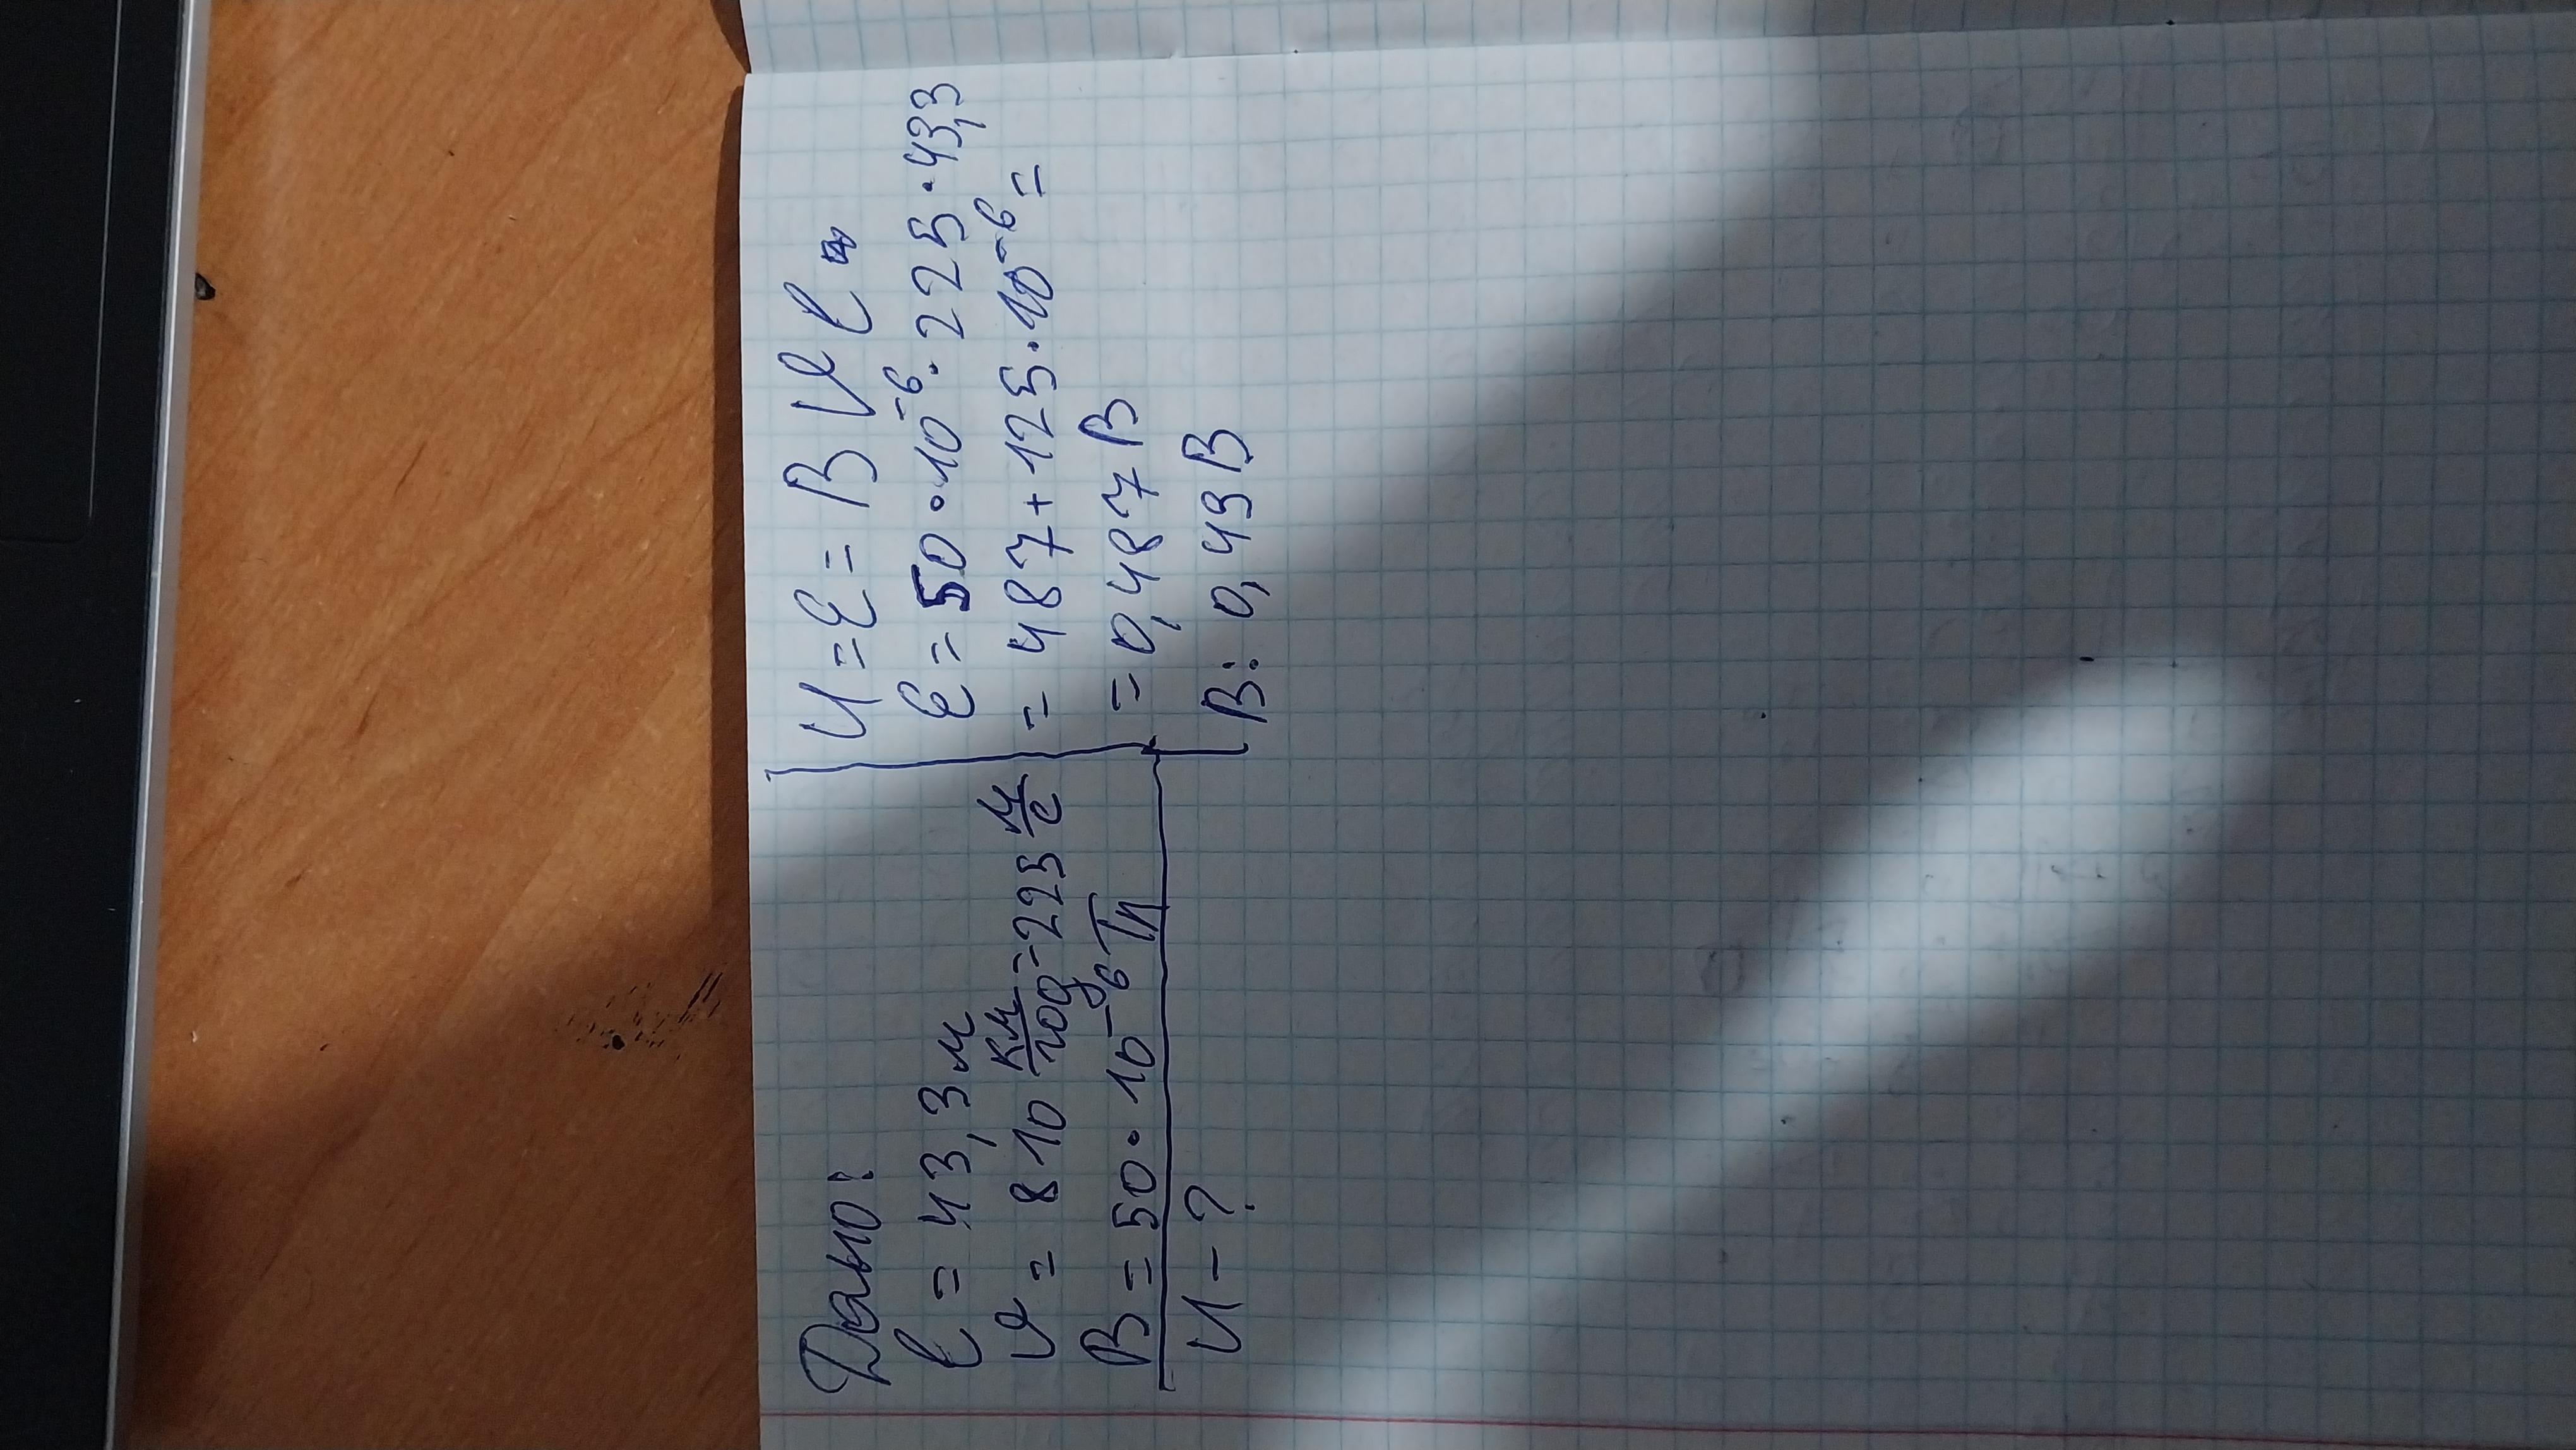 Дано:
l = 43,3 м
v = 810 км/год = 225 м/с
B = 50 · 10⁻⁶ Тл
U - ?
U = ℰ = B v l
ℰ = 50 · 10⁻⁶ · 225 · 43,3
= 487+125 · 10⁻⁶ =
= 0,487 В
В: 0,49 В